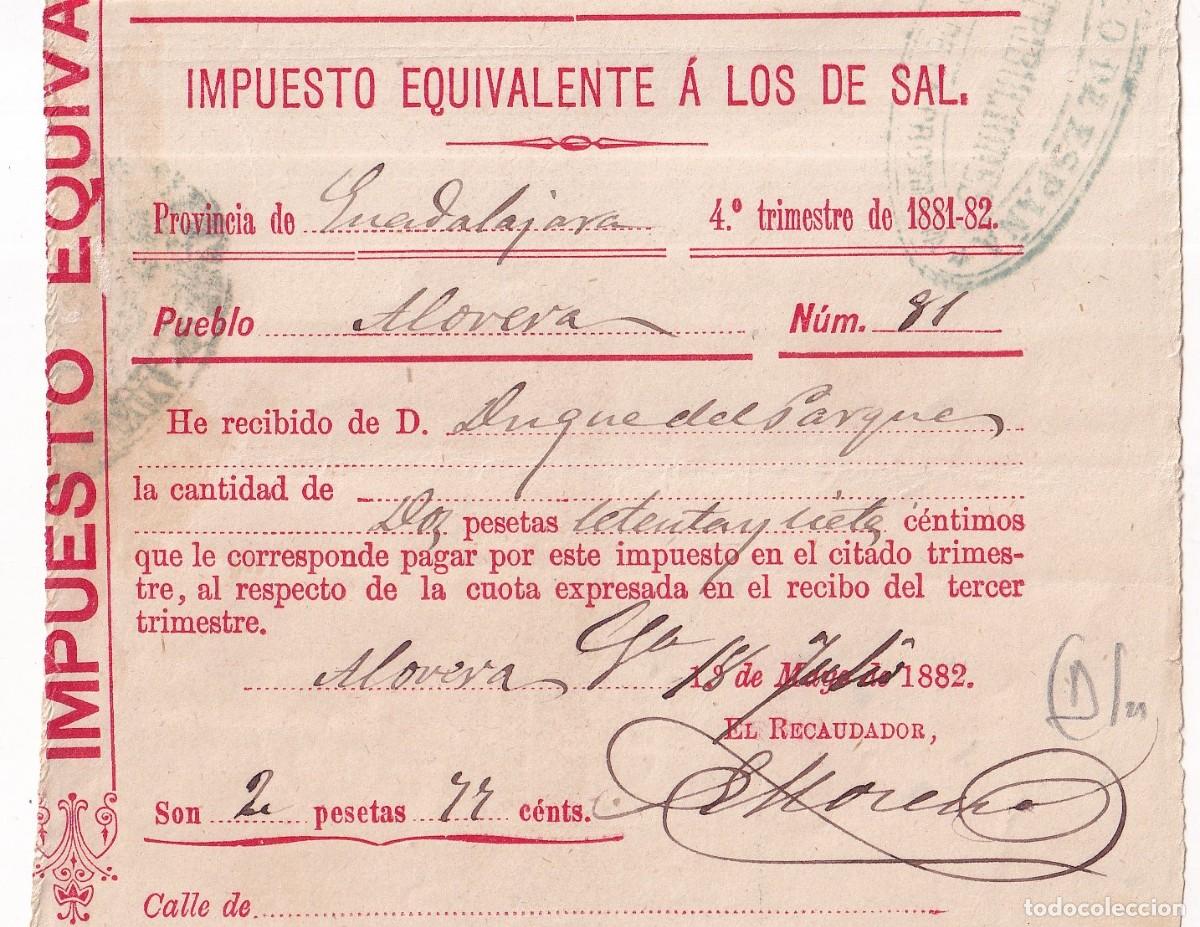 IMPUESTO EQUIVA
IMPUESTO EQUIVALENTE Á LOS DE SAL.
Provincia de Guadalajara 4.º trimestre de 1881-82.
Pueblo Alovera Núm. 81
He recibido de D. Duque del Parque
la cantidad de
Dos pesetas setenta y siete céntimos
que le corresponde pagar por este impuesto en el citado trimes-
tre, al respecto de la cuota expresada en el recibo del tercer
trimestre.
Alovera 18 de Julio 1882.
EL RECAUDADOR,
Moreno
Son 2 pesetas 77 cénts.
Calle de
DE ESPAÑA
D/21
todocoleccion